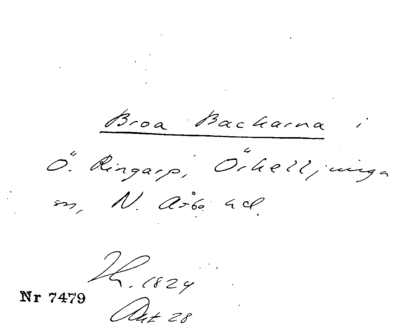 Broa Backarna i
Ö. Ringarp, Örkelljunga
sn, N. Åsbo hd.
1824
Nr 7479
Akt 28